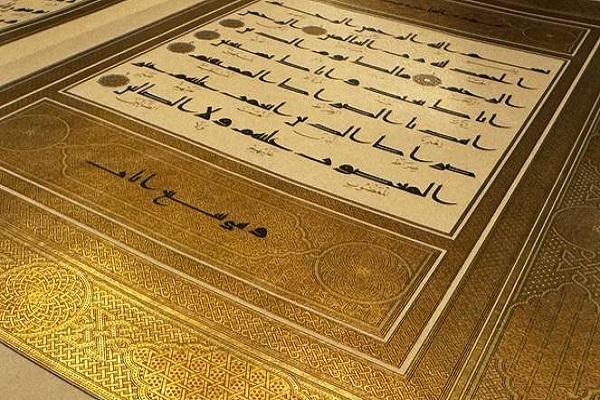 بسم الله الرحمن الرحيم
الحمد لله رب العلمين
الرحمن الرحيم ملك يوم الدين
اياك نعبد واياك نستعين
اهدنا الصراط المستقيم
صراط الذين انعمت عليهم غير
المغضوب عليهم ولا الضالين
وهي سبع ايات